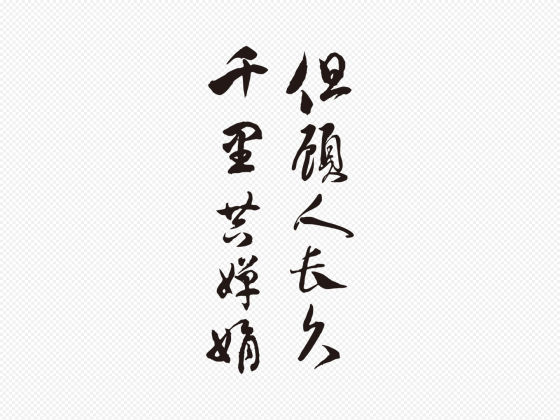 但願人长久
千里共婵娟